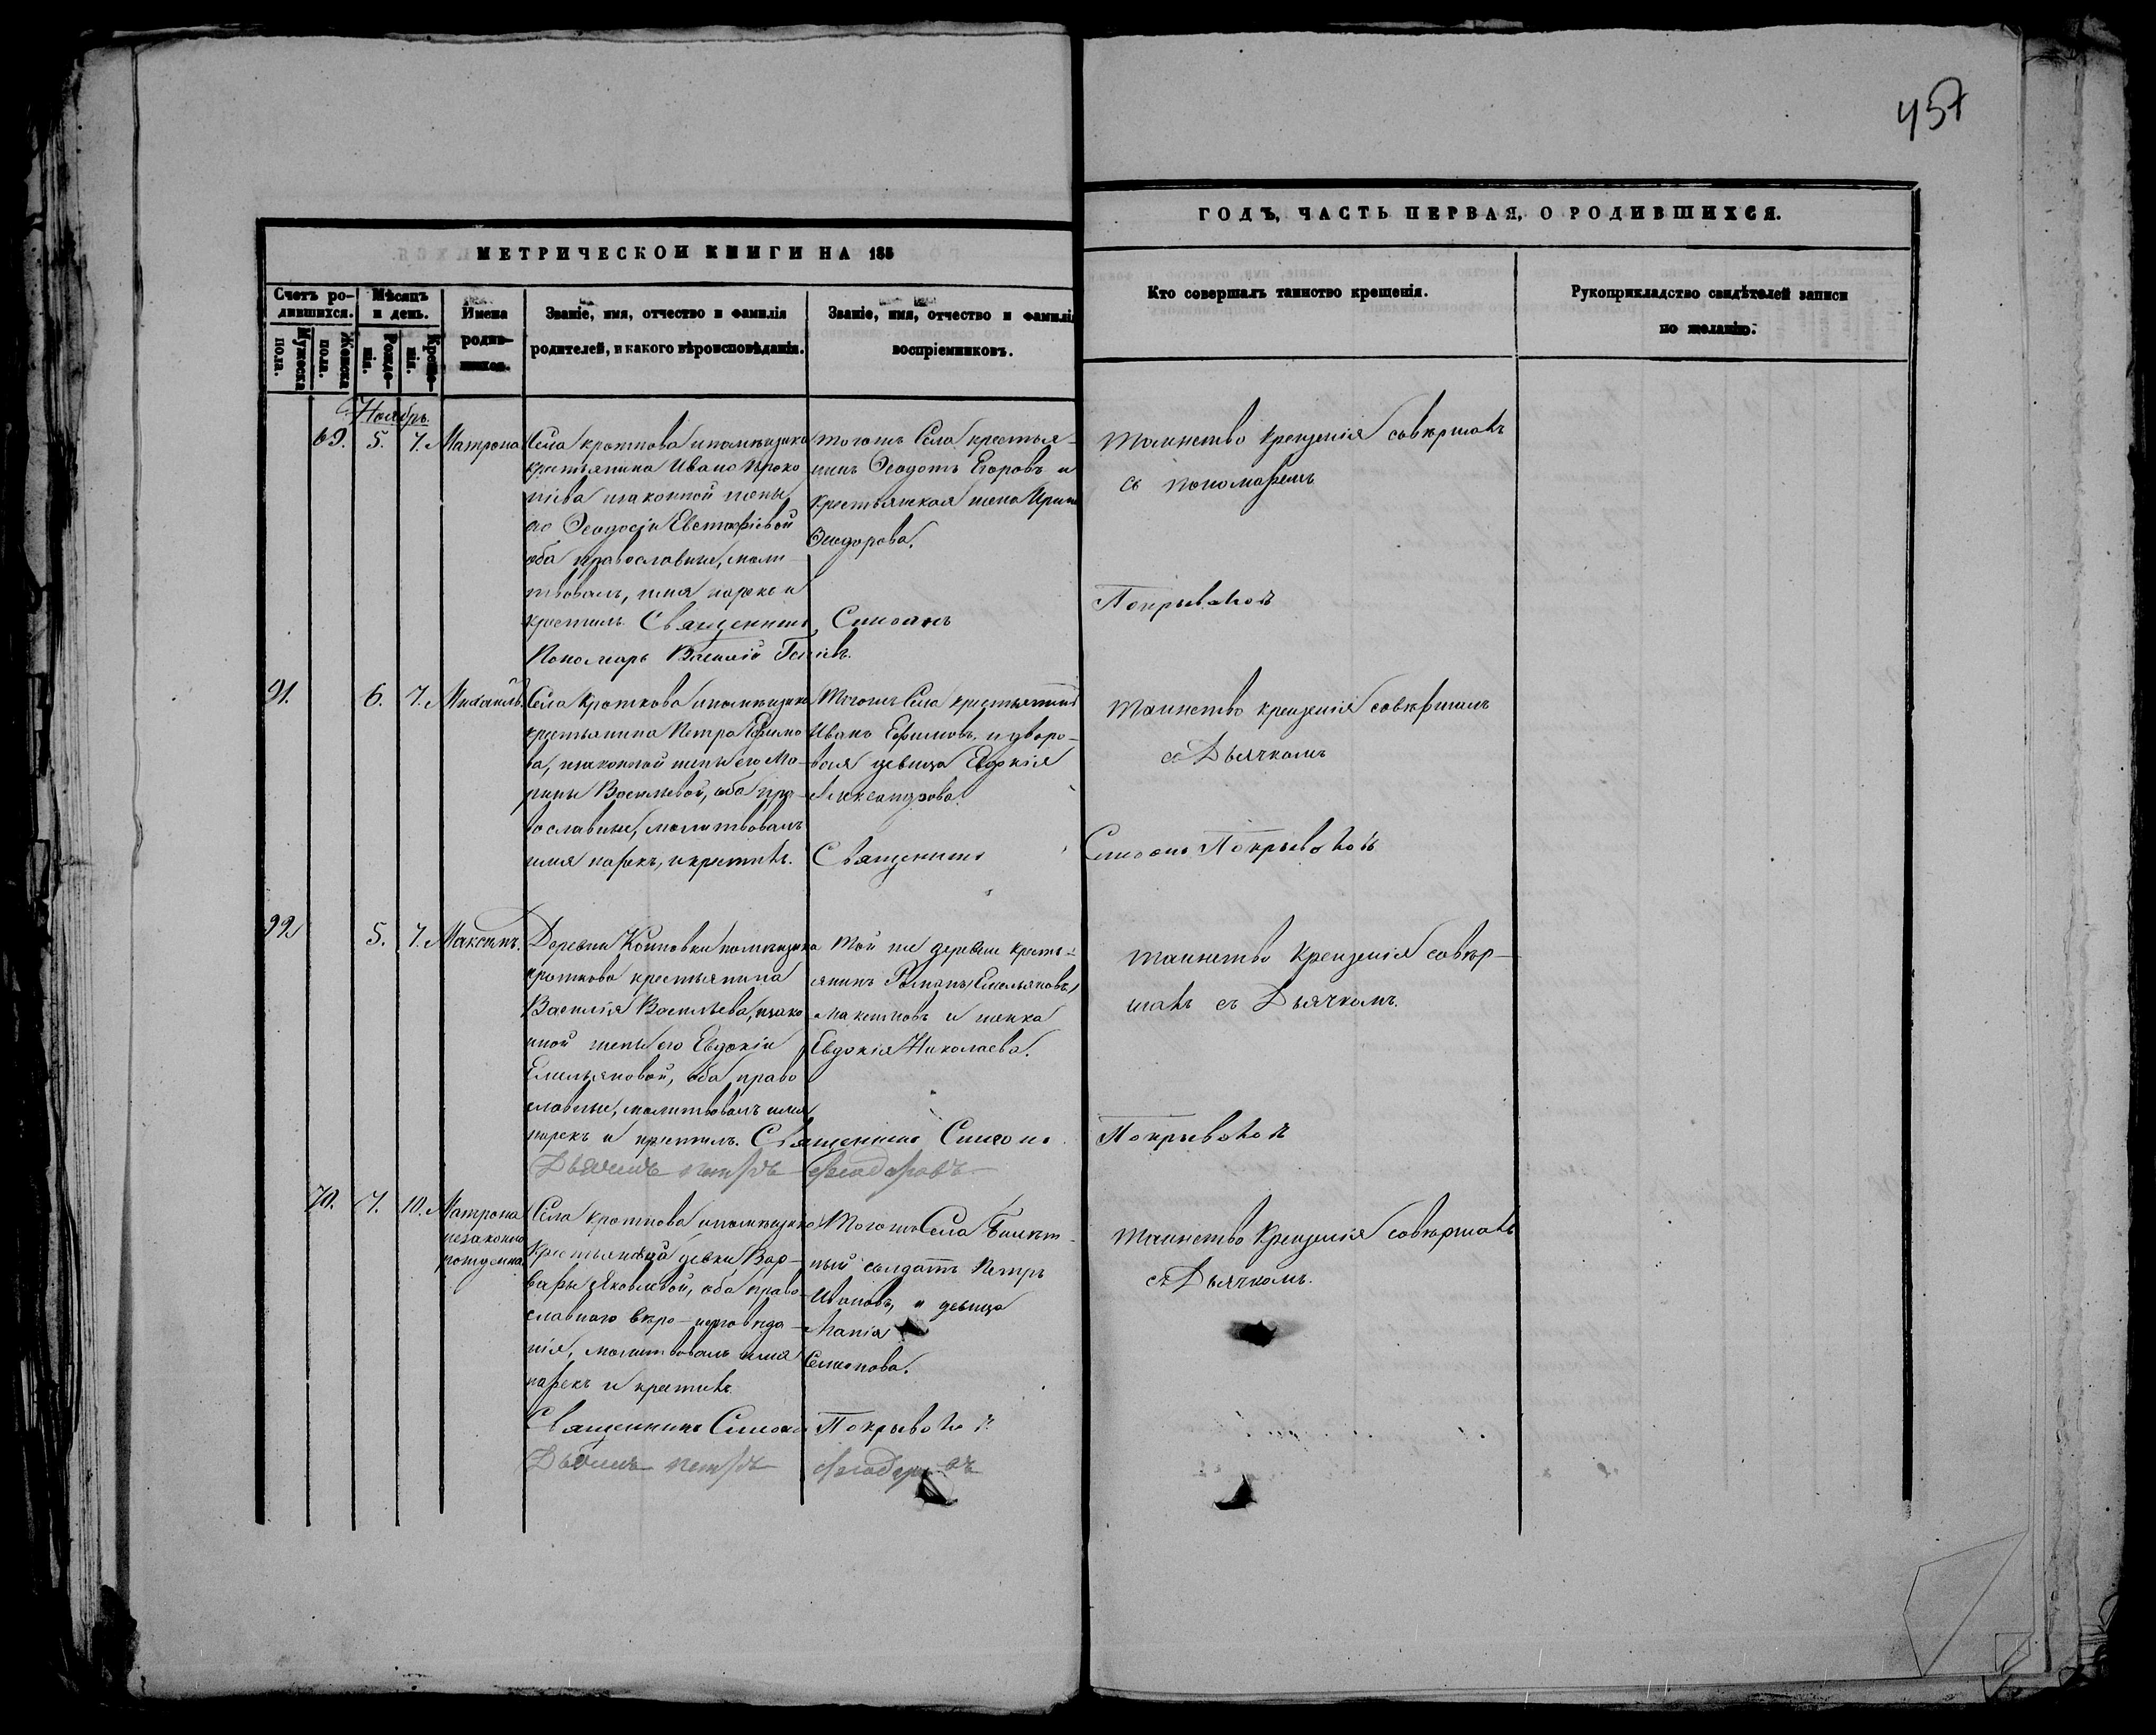 457
МЕТРИЧЕСКОЙ КНИГИ НА 185
ГОДЪ, ЧАСТЬ ПЕРВАЯ, О РОДИВШИХСЯ.
Счетъ ро-
дившихся.
Мужеска
пола.
Женска
пола.
Мѣсяцъ
и день.
Рожде-
нія.
Креще-
нія.
Имена
родив-
шихся.
Званіе, имя, отчество и фамилія
родителей, и какого вѣроисповѣданія.
Званіе, имя, отчество и фамилія
воспріемниковъ.
Кто совершалъ таинство крещенія.
Рукоприкладство свидѣтелей записи
по желанію.
Ноябрь
69. 5. 7. Матрона
Села Кроткова помѣщика
крестьянина Ивана Проко
піева и законной жены
его Ѳеодосіи Евстафіевой
оба православные, моли
твовалъ, имя нарекъ и
крестилъ Священникъ Симеонъ
Пономарь Василій
тогожъ Села крестья-
нинъ Ѳеодотъ Егоровъ и
крестьянская жена Ирина
Ѳеодорова.
таинство крещенія совершалъ
съ пономаремъ
Покрываловъ
91. 6. 7. Михаилъ.
Села Кроткова помѣщика
крестьянина Петра Ефимо
ва, и законной жены его Ма-
рины Васильевой, оба пра-
вославные, молитвовалъ
имя нарекъ, и крестилъ. Священникъ
Тогожъ Села крестьянинъ
Иванъ Ефимовъ, и дворо-
вая девица Евдокія
Александрова.
таинство крещенія совершалъ
съ Дьячкомъ
Симеонъ Покрываловъ
92 5. 7. Максимъ.
Деревни помѣщика
Кроткова крестьянина
Василія Васильева, и зако
нной жены его Евдокіи
Емельяновой, оба право
славные, молитвовалъ имя
нарекъ и крестилъ. Священникъ Симеонъ
Дьячекъ Петръ Ѳеодоровъ
Той же деревни кресть-
янинъ Романъ Емельяновъ
и женка
Евдокія Николаева.
таинство крещенія совер-
шалъ съ Дьячкомъ.
Покрываловъ
70. 7. 10. Матрона
незаконно
рожденна
Села Кроткова помѣщика
Крестьянской девки Вар-
вары Яковлевой, оба право-
славного вѣро-исповѣда-
нія, молитвовалъ имя
нарекъ и крестилъ
Священникъ Симеонъ Покрываловъ
Дьячекъ Петръ Ѳеодоровъ
Тогожъ Села Билет-
ный солдатъ Петръ
Ивановъ, и девица
Марія
Семенова.
таинство Крещенія совершалъ
съ Дьячкомъ.